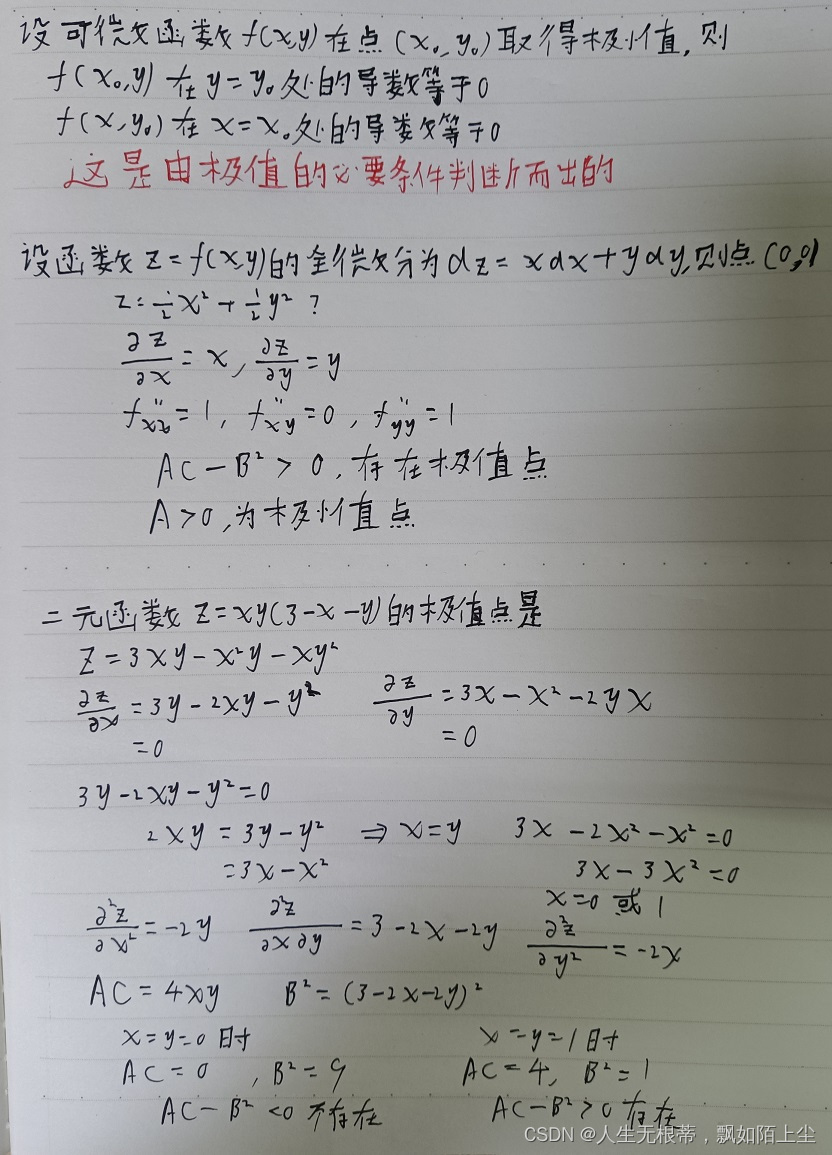 设可微文函数f(x,y)在点(x₀,y₀)取得极小值,则
f(x₀,y)在y=y₀处的导数等于0
f(x,y₀)在x=x₀处的导数等于0
这是由极值的必要条件判断而出的
设函数z=f(x,y)的全微分为dz=xdx+ydy,则点(0,0)
z=½x²+½y²?
∂z/∂x=x,∂z/∂y=y
f″xx=1,f″xy=0,f″yy=1
AC-B²>0,存在极值点
A>0,为极小值点
二元函数z=xy(3-x-y)的极值点是
Z=3xy-x²y-xy²
∂z/∂x=3y-2xy-y² ∂z/∂y=3x-x²-2yx
=0 =0
3y-2xy-y²=0
2xy=3y-y² ⇒x=y 3x-2x²-x²=0
=3x-x² 3x-3x²=0
x=0或1
∂²z/∂x²=-2y ∂²z/∂x∂y=3-2x-2y ∂²z/∂y²=-2x
AC=4xy B²=(3-2x-2y)²
x=y=0时 x=y=1时
AC=0,B²=9 AC=4,B²=1
AC-B²<0不存在 AC-B²>0存在
CSDN @人生无根蒂,飘如陌上尘